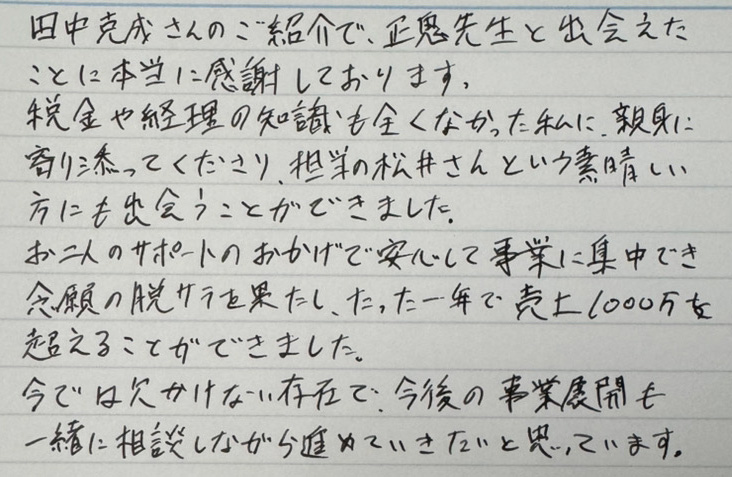 田中克成さんのご紹介で、正恩先生と出会えた
ことに本当に感謝しております。
税金や経理の知識も全くなかった私に、親身に
寄り添ってくださり、担当の松井さんという素晴しい
方にも出会うことができました。
お二人のサポートのおかげで安心して事業に集中でき
念願の脱サラを果たし、たった一年で売上1000万を
超えることができました。
今では欠かけない存在で、今後の事業展開も
一緒に相談しながら進めていきたいと思っています。